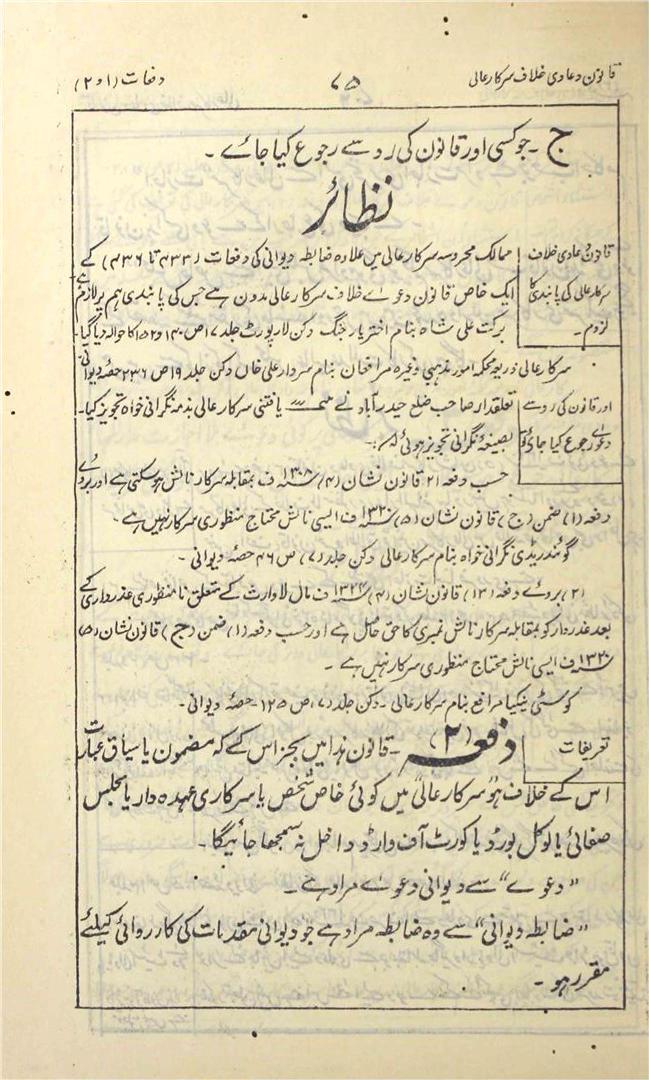 قانون دعاوی خلاف سرکارعالی
۷۵
دفعات (۱ و ۲)
ج - جو کسی اور قانون کی رو سے رجوع کیا جائے -
نظائر
قانون دعاوی خلاف
سرکارعالی کی پابندی کا
لزوم -
ممالک محروسہ سرکارعالی میں علاوہ ضابطہ دیوانی کی دفعات (۴۳۳ تا ۴۳۶) کے
ایک خاص قانون دعوےٰ خلاف سرکارعالی مدون ہے جس کی پابندی ہم پر لازم ہے
برکت علی شاہ بنام اختر یار جنگ دکن لا رپورٹ جلد ۱۷ ص ۱۴۰ و ۱۵ کا حوالہ دیا گیا -
سرکارعالی ذریعہ محکمہ امور مذہبی وغیرہ مرافعان بنام سردار علی خاں دکن جلد ۱۹ ص ۲۳۶ حصہ دیوانی
اور قانون کی رو سے
دعوےٰ رجوع کیا جائے
تعلقدار صاحب ضلع حیدرآباد نے یافتنی سرکارعالی بذمہ نگرانی خواہ تجویز کیا -
بصیغۂ نگرانی تجویز ہوئی کہ :-
حسب دفعہ ۲۱ قانون نشان (۴) ۱۳۰۸ ف بمقابلہ سرکار نالش ہو سکتی ہے اور بروے
دفعہ (۱) ضمن (ج) قانون نشان (۵) ۱۳۲۰ ف ایسی نالش محتاج منظوری سرکار نہیں ہے -
گونڈریڈی نگرانی خواہ بنام سرکارعالی دکن جلد (۷) ص ۴۶ حصہ دیوانی -
(۲) بروے دفعہ (۱۳) قانون نشان (۴) ۱۳۲۴ ف مال لاوارث کے متعلق نامنظوری عذرداری کے
بعد عذردار کو بمقابلہ سرکار نالش نمبری کا حق حاصل ہے اور حسب دفعہ (۱) ضمن (ج) قانون نشان (۵)
۱۳۲۰ ف ایسی نالش محتاج منظوری سرکار نہیں ہے -
کوسٹی ینکیا مرافع بنام سرکارعالی - دکن جلد (۱۷) ص ۱۲۵ - حصہ دیوانی -
تعریفات
دفعہ (۲) - قانون ہذا میں بجز اس کے کہ مضمون یا سیاق عبارت
اس کے خلاف ہو "سرکارعالی" میں کوئی خاص شخص یا سرکاری عہدہ دار یا مجلس
صفائی یا لوکل بورڈ یا کورٹ آف وارڈ داخل نہ سمجھا جائیگا -
"دعوے" سے دیوانی دعوےٰ مراد ہے -
"ضابطہ دیوانی" سے وہ ضابطہ مراد ہے جو دیوانی مقدمات کی کارروائی کیلئے
مقرر ہو -